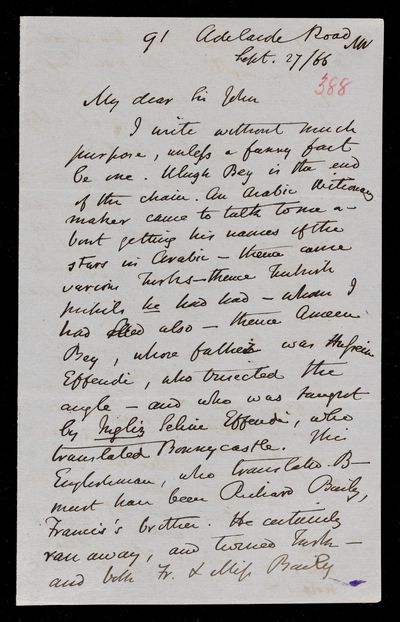 91 Adelaide Road NW
Sept. 27/66
388
My dear Sir John
I write without much
purpose, unless a funny fact
be one. Ulugh Bey is the end
of the chain. An Arabic dictionary
maker came to talk to me a-
bout getting his names of the
stars in Arabic – thence came
various Turks – thence Turkish
pupils he had had – whom I
had also – thence Ameen
Bey, whose father was Hussein
Effendi, who trisected the
angle – and who was taught
by Ingliz Selim Effendi, who
translated Bonnycastle. This
Englishman, who translated B–
must have been Richard Baily,
Francis's brother. He certainly
ran away, and turned Turk –
and both Fr. & Miss Baily